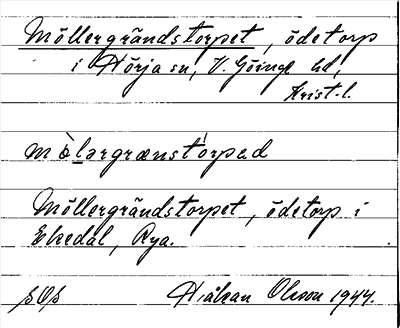 Möllergrändstorpet, ödetorp
i Hörja sn, V. Göinge hd,
Krist. l.
mö̀lərgrænstɔrpəd
Möllergrändstorpet, ödetorp i
Ekedal, Rya.
Håkan Olsson 1944.